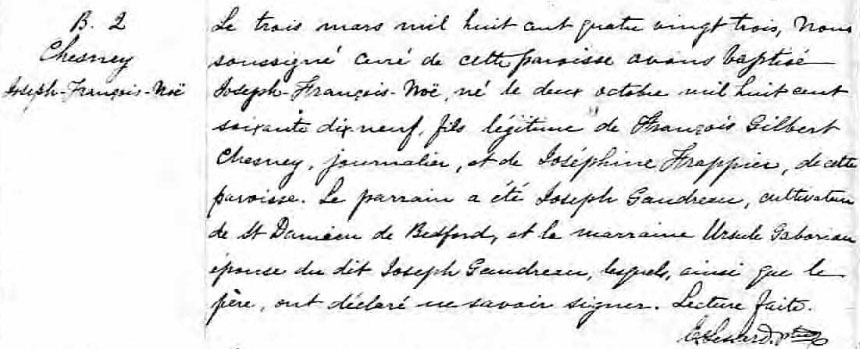 B. 2
Chesney
Joseph-François-Noë
Le trois mars mil huit cent quatre vingt trois, Nous
soussigné curé de cette paroisse avons baptisé
Joseph-François-Noë, né le deux octobre mil huit cent
soixante dix neuf, fils légitime de François Gilbert
Chesney, journalier, et de Joséphine Frappier, de cette
paroisse. Le parrain a été Joseph Gaudreau, cultivateur
de St Damien de Bedford, et la marraine Ursule Gaboriau
épouse du dit Joseph Gaudreau, lesquels, ainsi que le
père, ont déclaré ne savoir signer. Lecture faite.